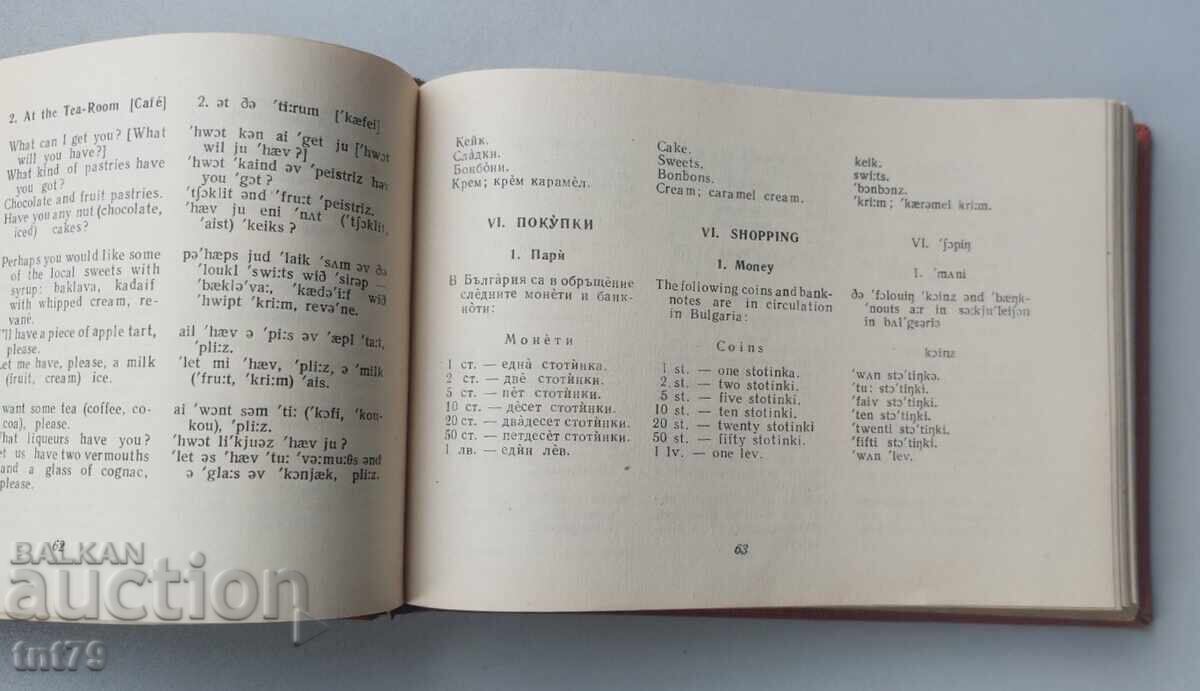 2. At the Tea-Room [Café]
What can I get you? [What
will you have?]
What kind of pastries have
you got?
Chocolate and fruit pastries.
Have you any nut (chocolate,
iced) cakes?
Perhaps you would like some
of the local sweets with
syrup: baklava, kadaif
with whipped cream, re-
vané.
'll have a piece of apple tart,
please.
Let me have, please, a milk
(fruit, cream) ice.
want some tea (coffee, co-
coa), please.
What liqueurs have you?
et us have two vermouths
and a glass of cognac,
please.
2. ət ðə ˈti:rum [ˈkæfei]
ˈhwɔt kən ai ˈget ju [ˈhwɔt
wil ju ˈhæv ?]
ˈhwɔt ˈkaind əv ˈpeistriz hav
you ˈgɔt ?
ˈtʃɔklit ənd ˈfru:t ˈpeistriz.
ˈhæv ju eni ˈnʌt (ˈtʃɔklit,
ˈaist) ˈkeiks ?
pəˈhæps jud ˈlaik ˈsʌm əv ðə
ˈloukl ˈswi:ts wið ˈsirəp —
ˈbækləˈva:, ˈkædəˈi:f wið
ˈhwipt ˈkri:m, revəˈne.
ail ˈhæv ə ˈpi:s əv ˈæpl ˈta:t,
ˈpli:z.
ˈlet mi ˈhæv, ˈpli:z, ə ˈmilk
(ˈfru:t, ˈkri:m) ˈais.
ai ˈwɔnt səm ˈti: (ˈkɔfi, ˈkou-
kou), ˈpli:z.
ˈhwɔt liˈkjuəz ˈhæv ju ?
ˈlet əs ˈhæv ˈtu: ˈvə:mu:θs ənd
ə ˈgla:s əv ˈkɔnjæk, pli:z.
62
Кейк.
Сла̀дки.
Бонбо̀ни.
Крем; крѐм карамѐл.
VI. ПОКУ̀ПКИ
1. Парѝ
В Бълга̀рия са в обръщѐние
слѐдните монѐти и банк-
но̀ти:
Монѐти
1 ст. — една̀ стотѝнка.
2 ст. — двѐ стотѝнки.
5 ст. — пѐт стотѝнки.
10 ст. — дѐсет стотѝнки.
20 ст. — два̀десет стотѝнки.
50 ст. — петдесѐт стотѝнки.
1 лв. — едѝн лѐв.
Cake.
Sweets.
Bonbons.
Cream; caramel cream.
VI. SHOPPING
1. Money
The following coins and bank-
notes are in circulation
in Bulgaria:
Coins
1 st. — one stotinka.
2 st. — two stotinki.
5 st. — five stotinki.
10 st. — ten stotinki.
20 st. — twenty stotinki
50 st. — fifty stotinki.
1 lv. — one lev.
keik.
swi:ts.
ˈbɔnbɔnz.
ˈkri:m ; ˈkærəmel kri:m.
VI. ˈʃɔpiŋ
1. ˈmʌni
ðə ˈfɔlouiŋ ˈkɔinz ənd ˈbæŋk-
ˈnouts a:r in sə:kjuˈleiʃən
in bʌlˈgɛəriə
kɔinz
ˈwʌn stɔˈtiŋkə.
ˈtu: stɔˈtiŋki.
ˈfaiv stɔˈtiŋki.
ˈten stɔˈtiŋki.
ˈtwenti stɔˈtiŋki
ˈfifti stɔˈtiŋki.
ˈwʌn lev.
63
BALKAN
auction
tnt79